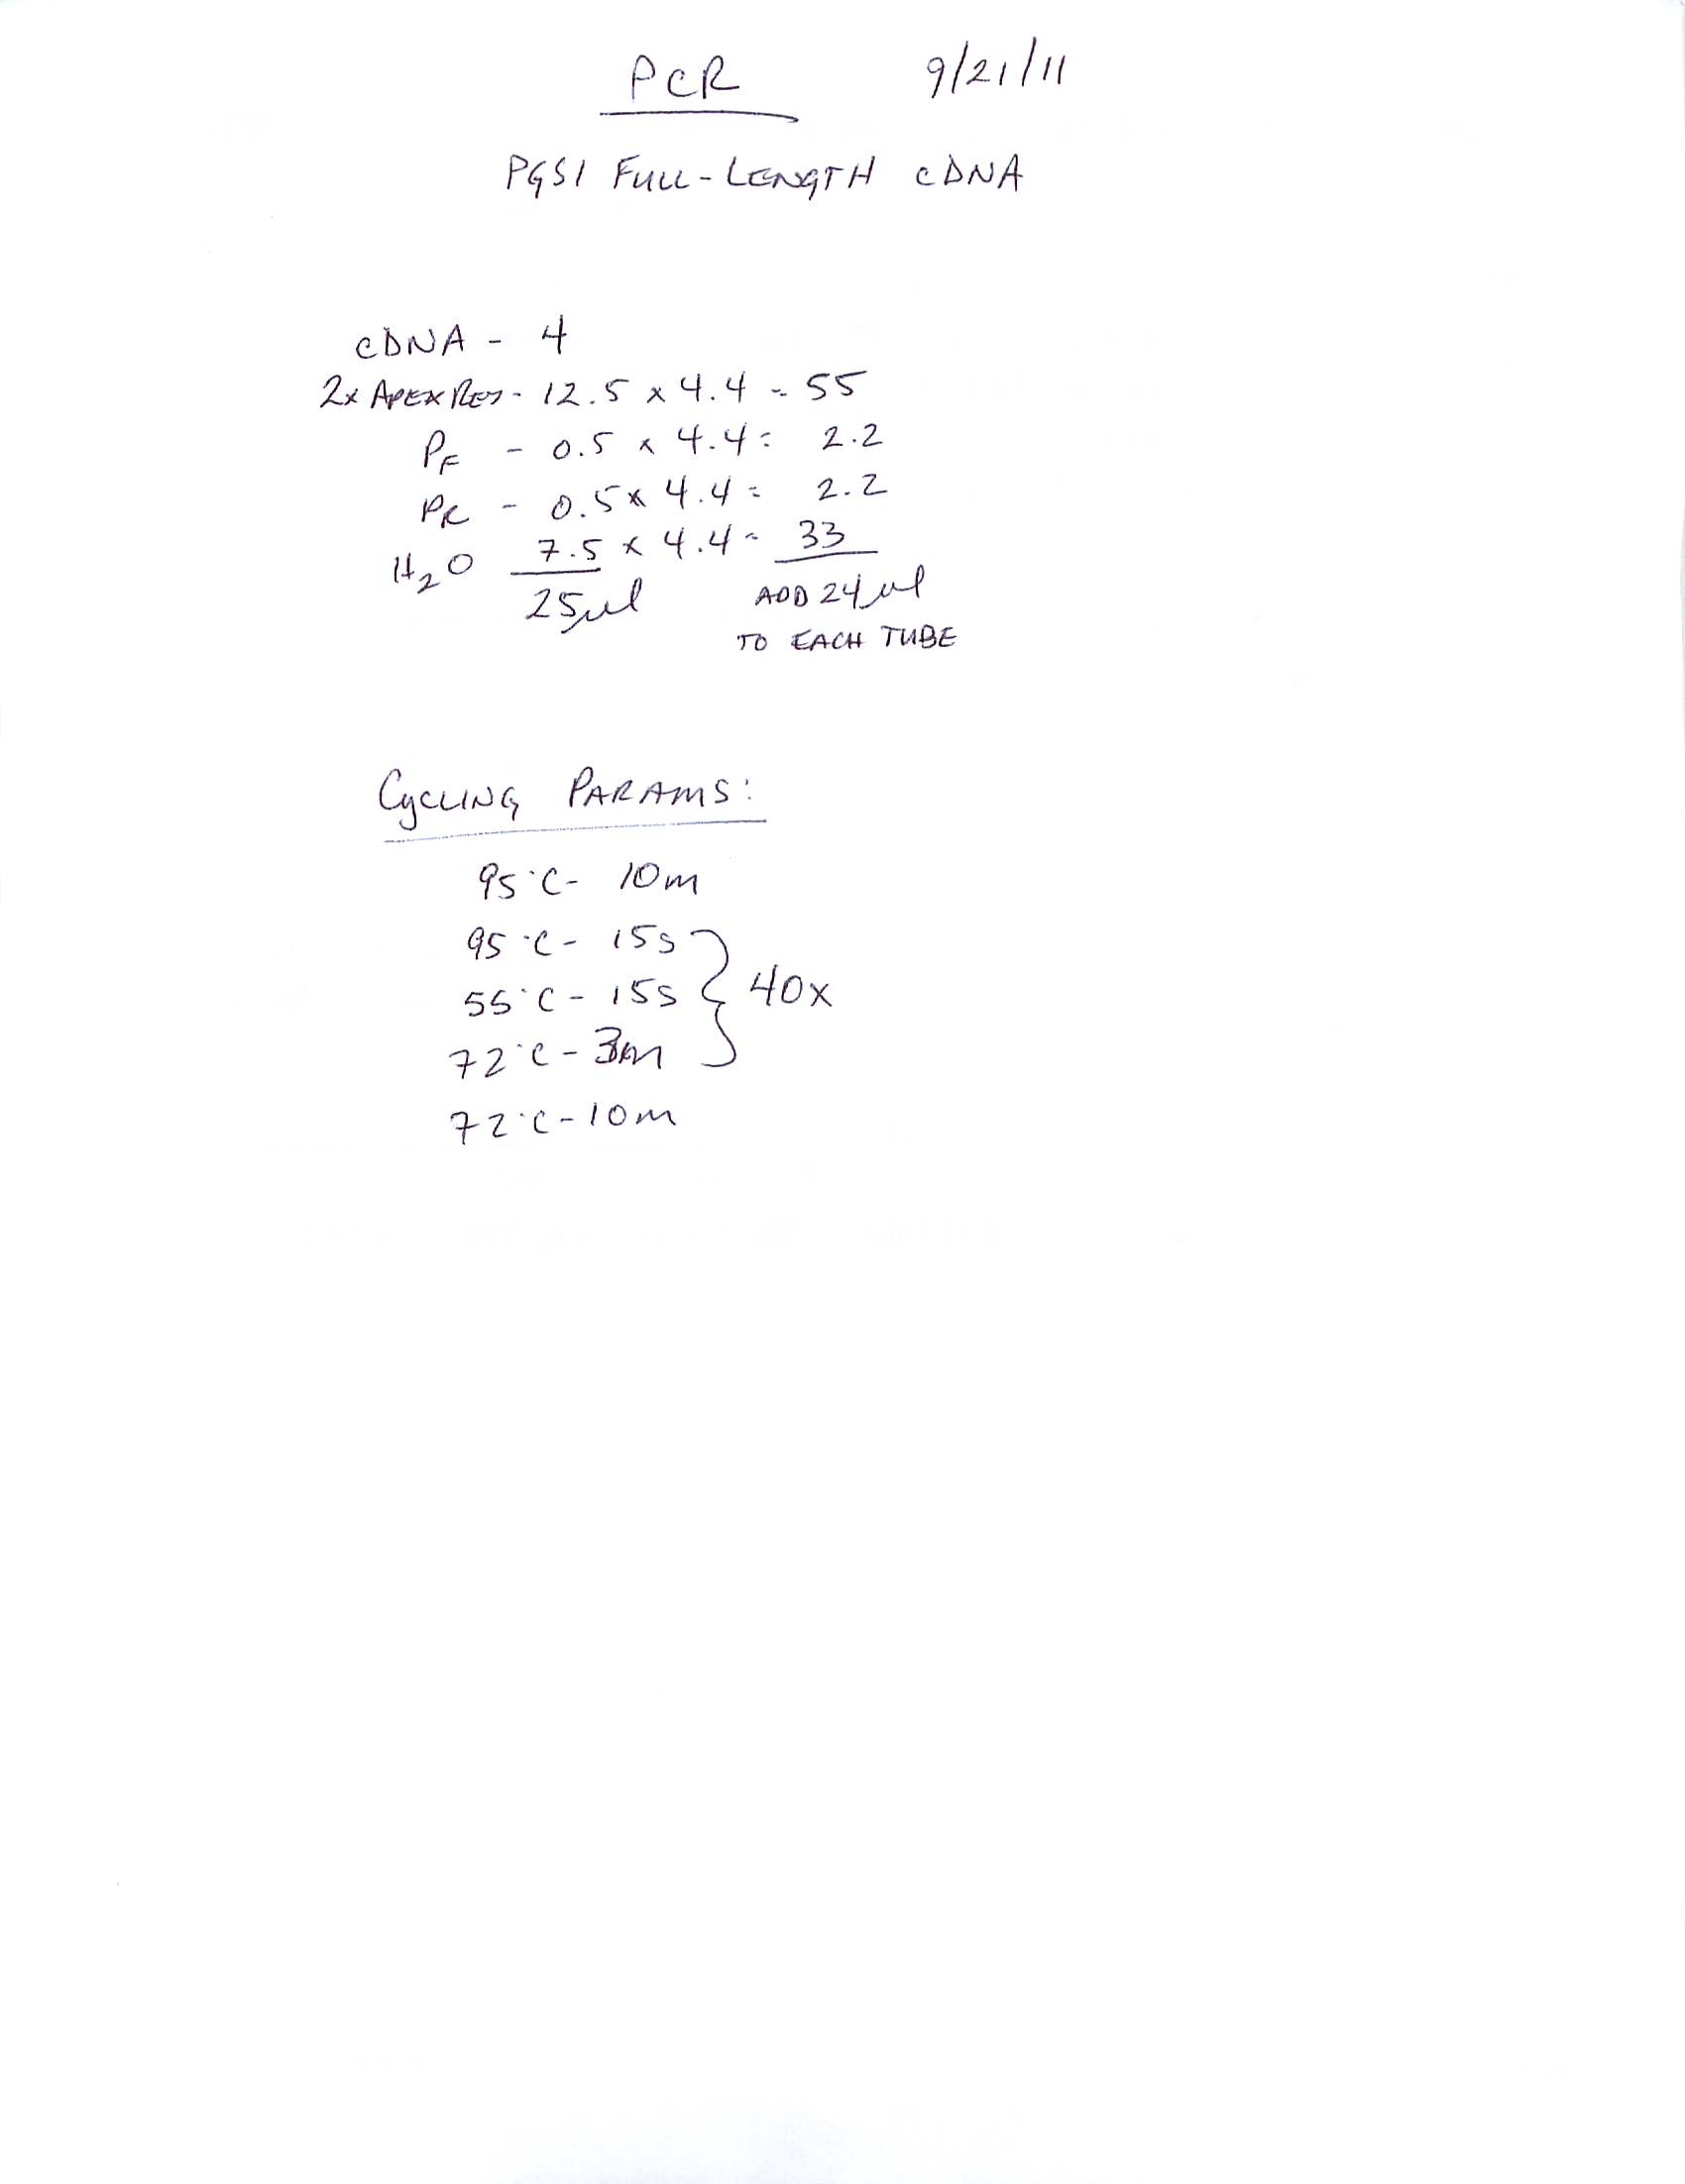 PCR 9/21/11
PGS1 FULL-LENGTH cDNA
cDNA - 4
2x APEX RED - 12.5 x 4.4 = 55
PF - 0.5 x 4.4 = 2.2
PR - 0.5 x 4.4 = 2.2
H2O 7.5 x 4.4 = 33
25µl ADD 24µl
TO EACH TUBE
CYCLING PARAMS:
95°C - 10m
95°C - 15s
55°C - 15s } 40x
72°C - 3m
72°C - 10m